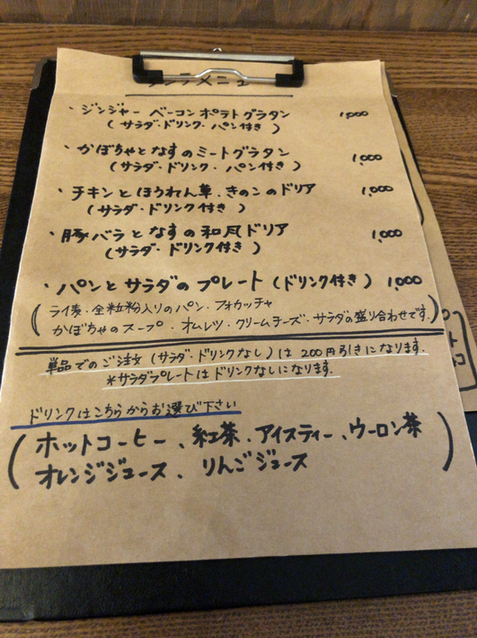 ランチメニュー
・ジンジャーベーコンポテトグラタン 1,000
(サラダ・ドリンク・パン付き)
・かぼちゃとなすのミートグラタン 1,000
(サラダ・ドリンク・パン付き)
・チキンとほうれん草、きのこのドリア 1,000
(サラダ・ドリンク付き)
・豚バラとなすの和風ドリア 1,000
(サラダ・ドリンク付き)
・パンとサラダのプレート(ドリンク付き) 1,000
(ライ麦・全粒粉入りのパン・フォカッチャ
かぼちゃのスープ・オムレツ・クリームチーズ・サラダの盛り合わせです)
単品でのご注文(サラダ・ドリンクなし)は200円引きになります。
*サラダプレートはドリンクなしになります。
ドリンクはこちらからお選び下さい
(ホットコーヒー、紅茶、アイスティー、ウーロン茶
オレンジジュース、りんごジュース)